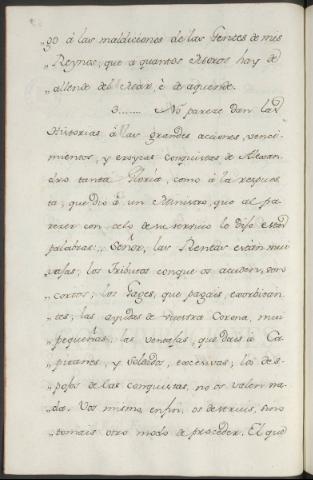 „go á las maldiciones de las Gentes de mis
„Reynos, que a quantos Moros hay de
„allende del Mar, è de aquende.
3....... No parece dan las
Historias á las grandes acciones, venci-
mientos, y eroycas conquistas de Alexan-
dro tanta Gloria, como à la respues
ta, que dió à un Ministro, que al pa-
recer con celo de su servicio le dijo estas
palabras: „Señor, las Rentas están mui
„vajas; los Tributos con que os acuden, son
„cortos; los Gages, que pagais exorbitan-
„tes; las ayudas de vuestra Corona, mui
„pequeñas; las ventajas, que dais à Ca-
„pitanes, y Soldados, excesivas; los des-
„pojos de las conquistas, no os valen na-
„da. Vos mismo, enfin, os destruis, sino
„tomais otro modo de proceder. El que